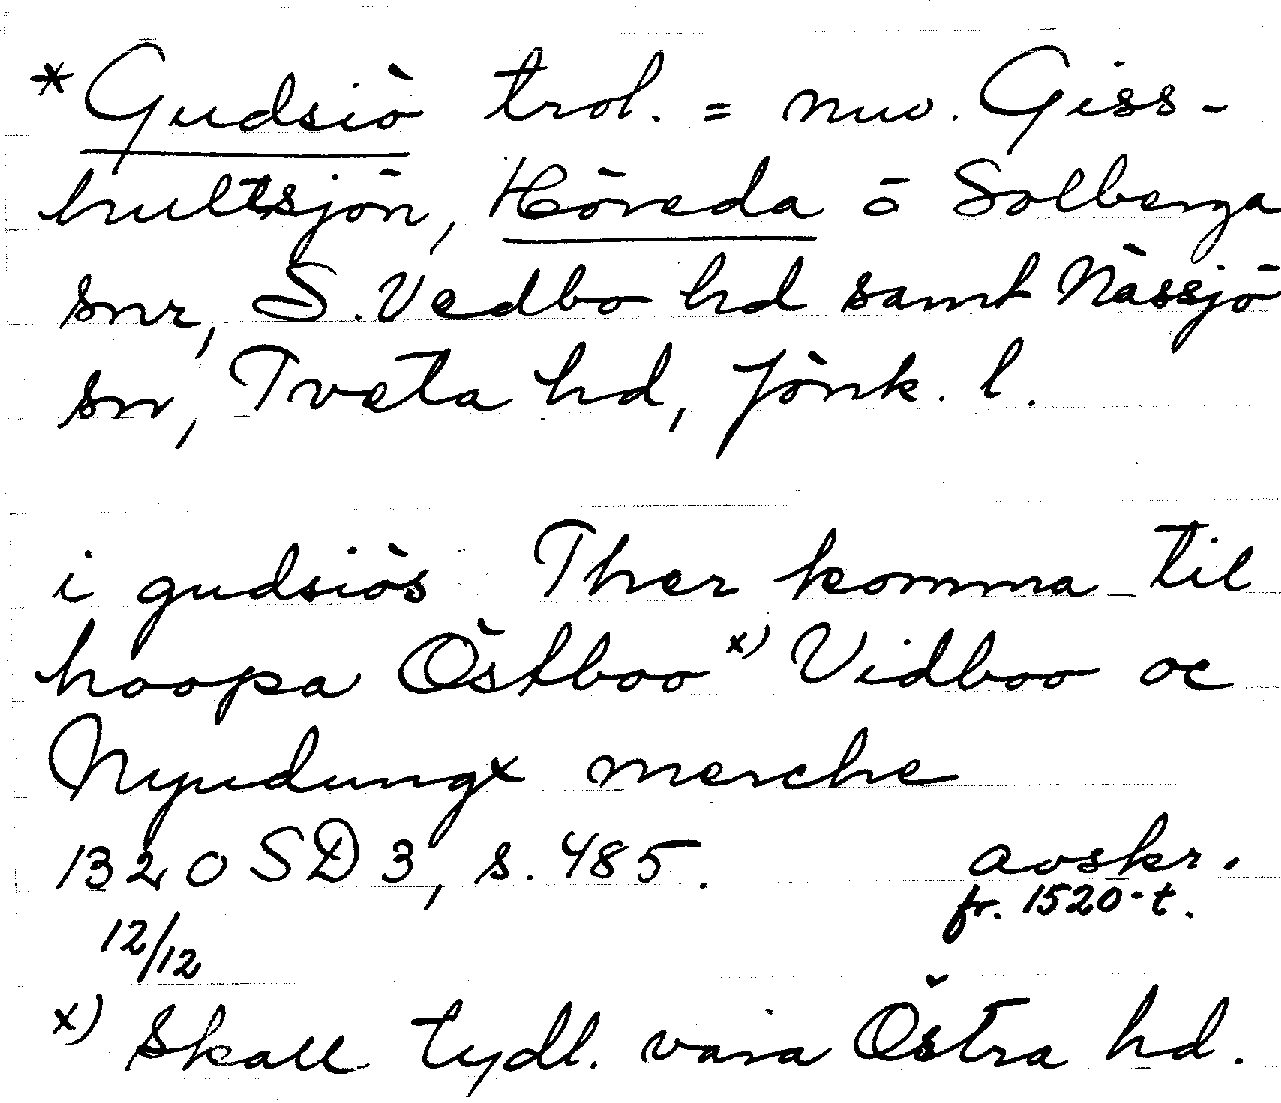 *Gudsiö trol. = nuv. Giss-
hultsjön, Höreda o Solberga
snr, S. Vedbo hd samt Nässjö
sn, Tveta hd, Jönk. l.
i gudsiös Ther komma til
hoopa Östboo x) Vidboo oc
Nyudungx merche
1320 SD 3, s. 485. avskr.
fr. 1520-t.
12/12
x) Skall tydl. vara Östra hd.